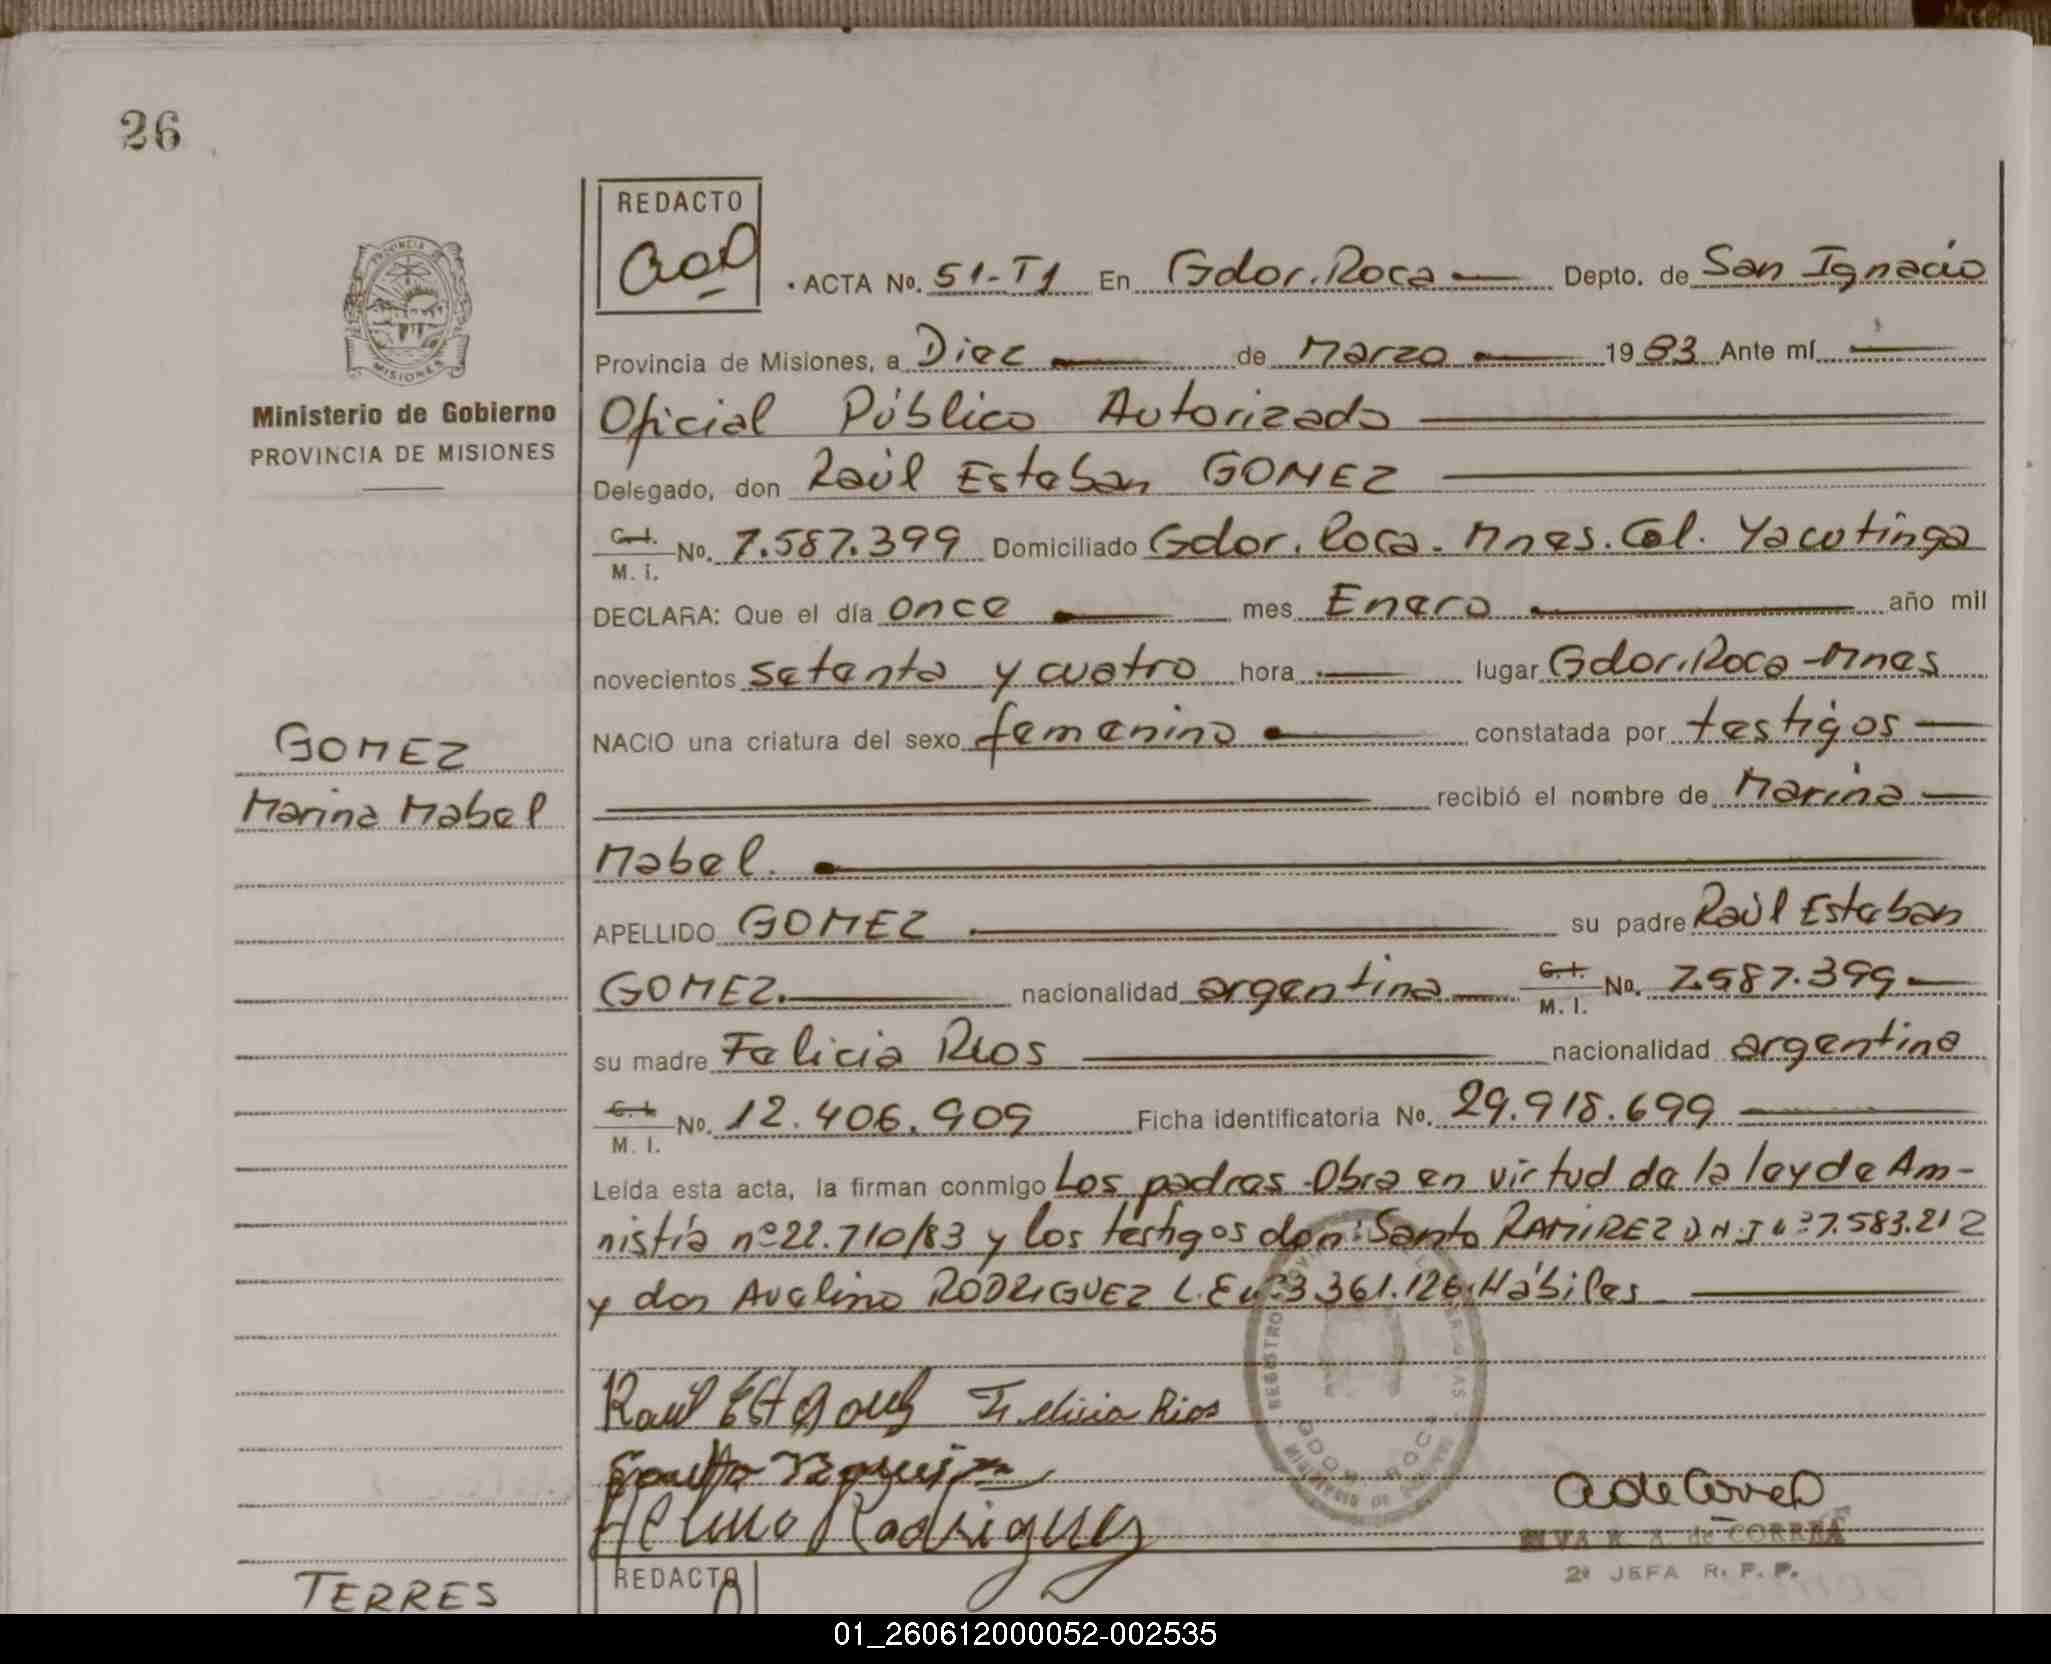 26
REDACTO
PROVINCIA
MISIONES
ACTA No. 51-T1 En Gdor. Roca Depto. de San Ignacio
Provincia de Misiones, a Diez de Marzo 1983 Ante mí
Ministerio de Gobierno
PROVINCIA DE MISIONES
Oficial Público Autorizado
Delegado, don Raúl Esteban GOMEZ
C.I.
M. I. No. 7.587.399 Domiciliado Gdor. Roca. Mnes. Col. Yacutinga
DECLARA: Que el día once mes Enero año mil
novecientos setenta y cuatro hora lugar Gdor. Roca - Mnes
NACIO una criatura del sexo femenino constatada por testigos
GOMEZ
Marina Mabel
recibió el nombre de Marina
Mabel.
APELLIDO GOMEZ su padre Raúl Esteban
GOMEZ. nacionalidad argentina C.I. M. I. No. 7.587.399
su madre Felicia Rios nacionalidad argentina
C.I.
M. I. No. 12.406.909 Ficha identificatoria No. 29.918.699
Leída esta acta, la firman conmigo Los padres. Obra en virtud de la ley de Am-
nistía nº 22.710/83 y los testigos don: Santo RAMIREZ D.N.I nº 7.583.212
y don Avelino RODRIGUEZ L.E nº 3.361.126. Hábiles
Felicia Rios
Rodriguez
GDOR. ROCA
A de Correa
ELVA R. A. de CORREA
2ª JEFA R. P. P.
REDACTO
TERRES
01_260612000052-002535